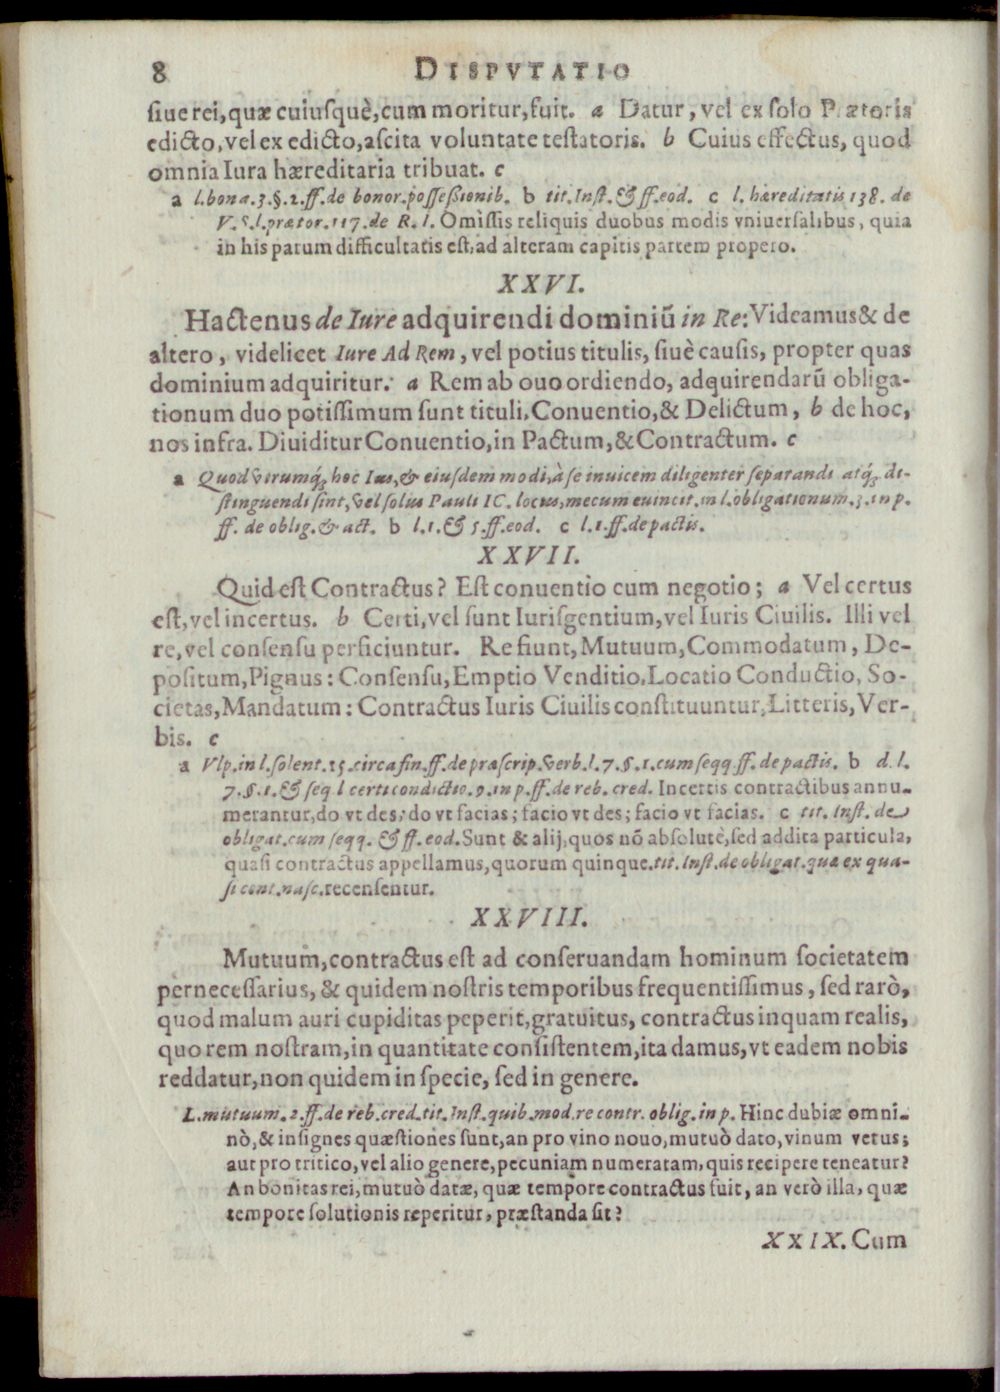 8 DISPVTATIO
ſiue rei, quæ cuiuſquè, cum moritur, fuit. a Datur, vel ex ſolo Prætoris
edicto, vel ex edicto, aſcita voluntate teſtatoris. b Cuius effectus, quod
omnia Iura hæreditaria tribuat. c
a l. bona. 3. §. 2. ff. de bonor. poſſeßionib. b tit. Inſt. & ff. eod. c l. hæreditatis 138. de
V. S. l. prætor. 117. de R. I. Omiſſis reliquis duobus modis vniuerſalibus, quia
in his parum difficultatis eſt, ad alteram capitis partem propero.
XXVI.
Hactenus de Iure adquirendi dominiũ in Re: Videamus & de
altero, videlicet Iure Ad Rem, vel potius titulis, ſiuè cauſis, propter quas
dominium adquiritur. a Rem ab ouo ordiendo, adquirendarũ obliga-
tionum duo potiſſimum ſunt tituli, Conuentio, & Delictum, b de hoc,
nos infra. Diuiditur Conuentio, in Pactum, & Contractum. c
a Quod vtrumq́; hoc Ius, & eiuſdem modi, à ſe inuicem diligenter ſeparandi atq́; di-
ſtinguendi ſint, vel ſolius Pauli IC. locus, mecum euincit, in l. obligationum. 3. in p.
ff. de oblig. & act. b l. 1. & 5. ff. eod. c l. 1. ff. de pactis.
XXVII.
Quid eſt Contractus? Eſt conuentio cum negotio; a Vel certus
eſt, vel incertus. b Certi, vel ſunt Iurisgentium, vel Iuris Ciuilis. Illi vel
re, vel conſenſu perficiuntur. Re fiunt, Mutuum, Commodatum, De-
poſitum, Pignus: Conſenſu, Emptio Venditio, Locatio Conductio, So-
cietas, Mandatum: Contractus Iuris Ciuilis conſtituuntur, Litteris, Ver-
bis. c
a Vlp. in l. ſolent. 15. circa fin. ff. de præſcrip. verb. l. 7. §. 1. cum ſeqq. ff. de pactis. b d. l.
7. §. 1. & ſeq. l certi condictio. 9. in p. ff. de reb. cred. Incertis contractibus annu-
merantur, do vt des; do vt facias; facio vt des; facio vt facias. c tit. Inſt. de
obligat. cum ſeqq. & ff. eod. Sunt & alij, quos nõ abſolutè, ſed addita particula,
quaſi contractus appellamus, quorum quinque. tit. Inſt. de obligat. quæ ex qua-
ſi cont. naſc. recenſentur.
XXVIII.
Mutuum, contractus eſt ad conſeruandam hominum ſocietatem
pernecеſſarius, & quidem noſtris temporibus frequentiſſimus, ſed rarò,
quod malum auri cupiditas peperit, gratuitus, contractus inquam realis,
quo rem noſtram, in quantitate conſiſtentem, ita damus, vt eadem nobis
reddatur, non quidem in ſpecie, ſed in genere.
L. mutuum. 2. ff. de reb. cred. tit. Inſt. quib. mod. re contr. oblig. in p. Hinc dubiæ omni-
nò, & inſignes quæſtiones ſunt, an pro vino nouo, mutuò dato, vinum vetus;
aut pro tritico, vel alio genere, pecuniam numeratam, quis recipere teneatur?
An bonitas rei, mutuò datæ, quæ tempore contractus fuit, an verò illa, quæ
tempore ſolutionis reperitur, præſtanda ſit?
XXIX. Cum